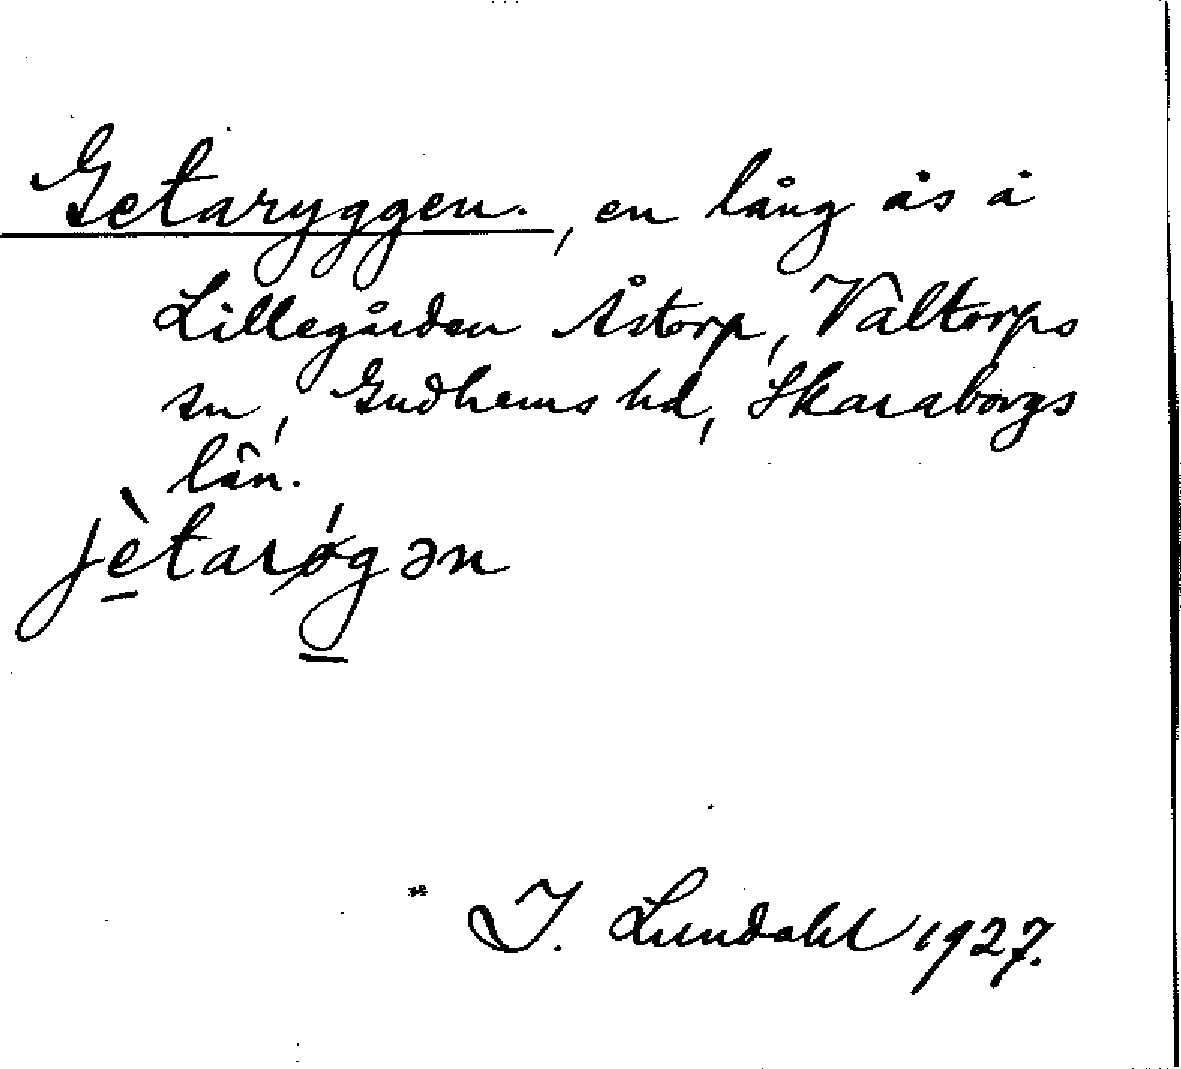 Getaryggen., en lång ås å
Lillegården Åstorp, Valtorps
sn, Gudhems hd, Skaraborgs
län.
jètarǿgən
I. Lundahl 1927.